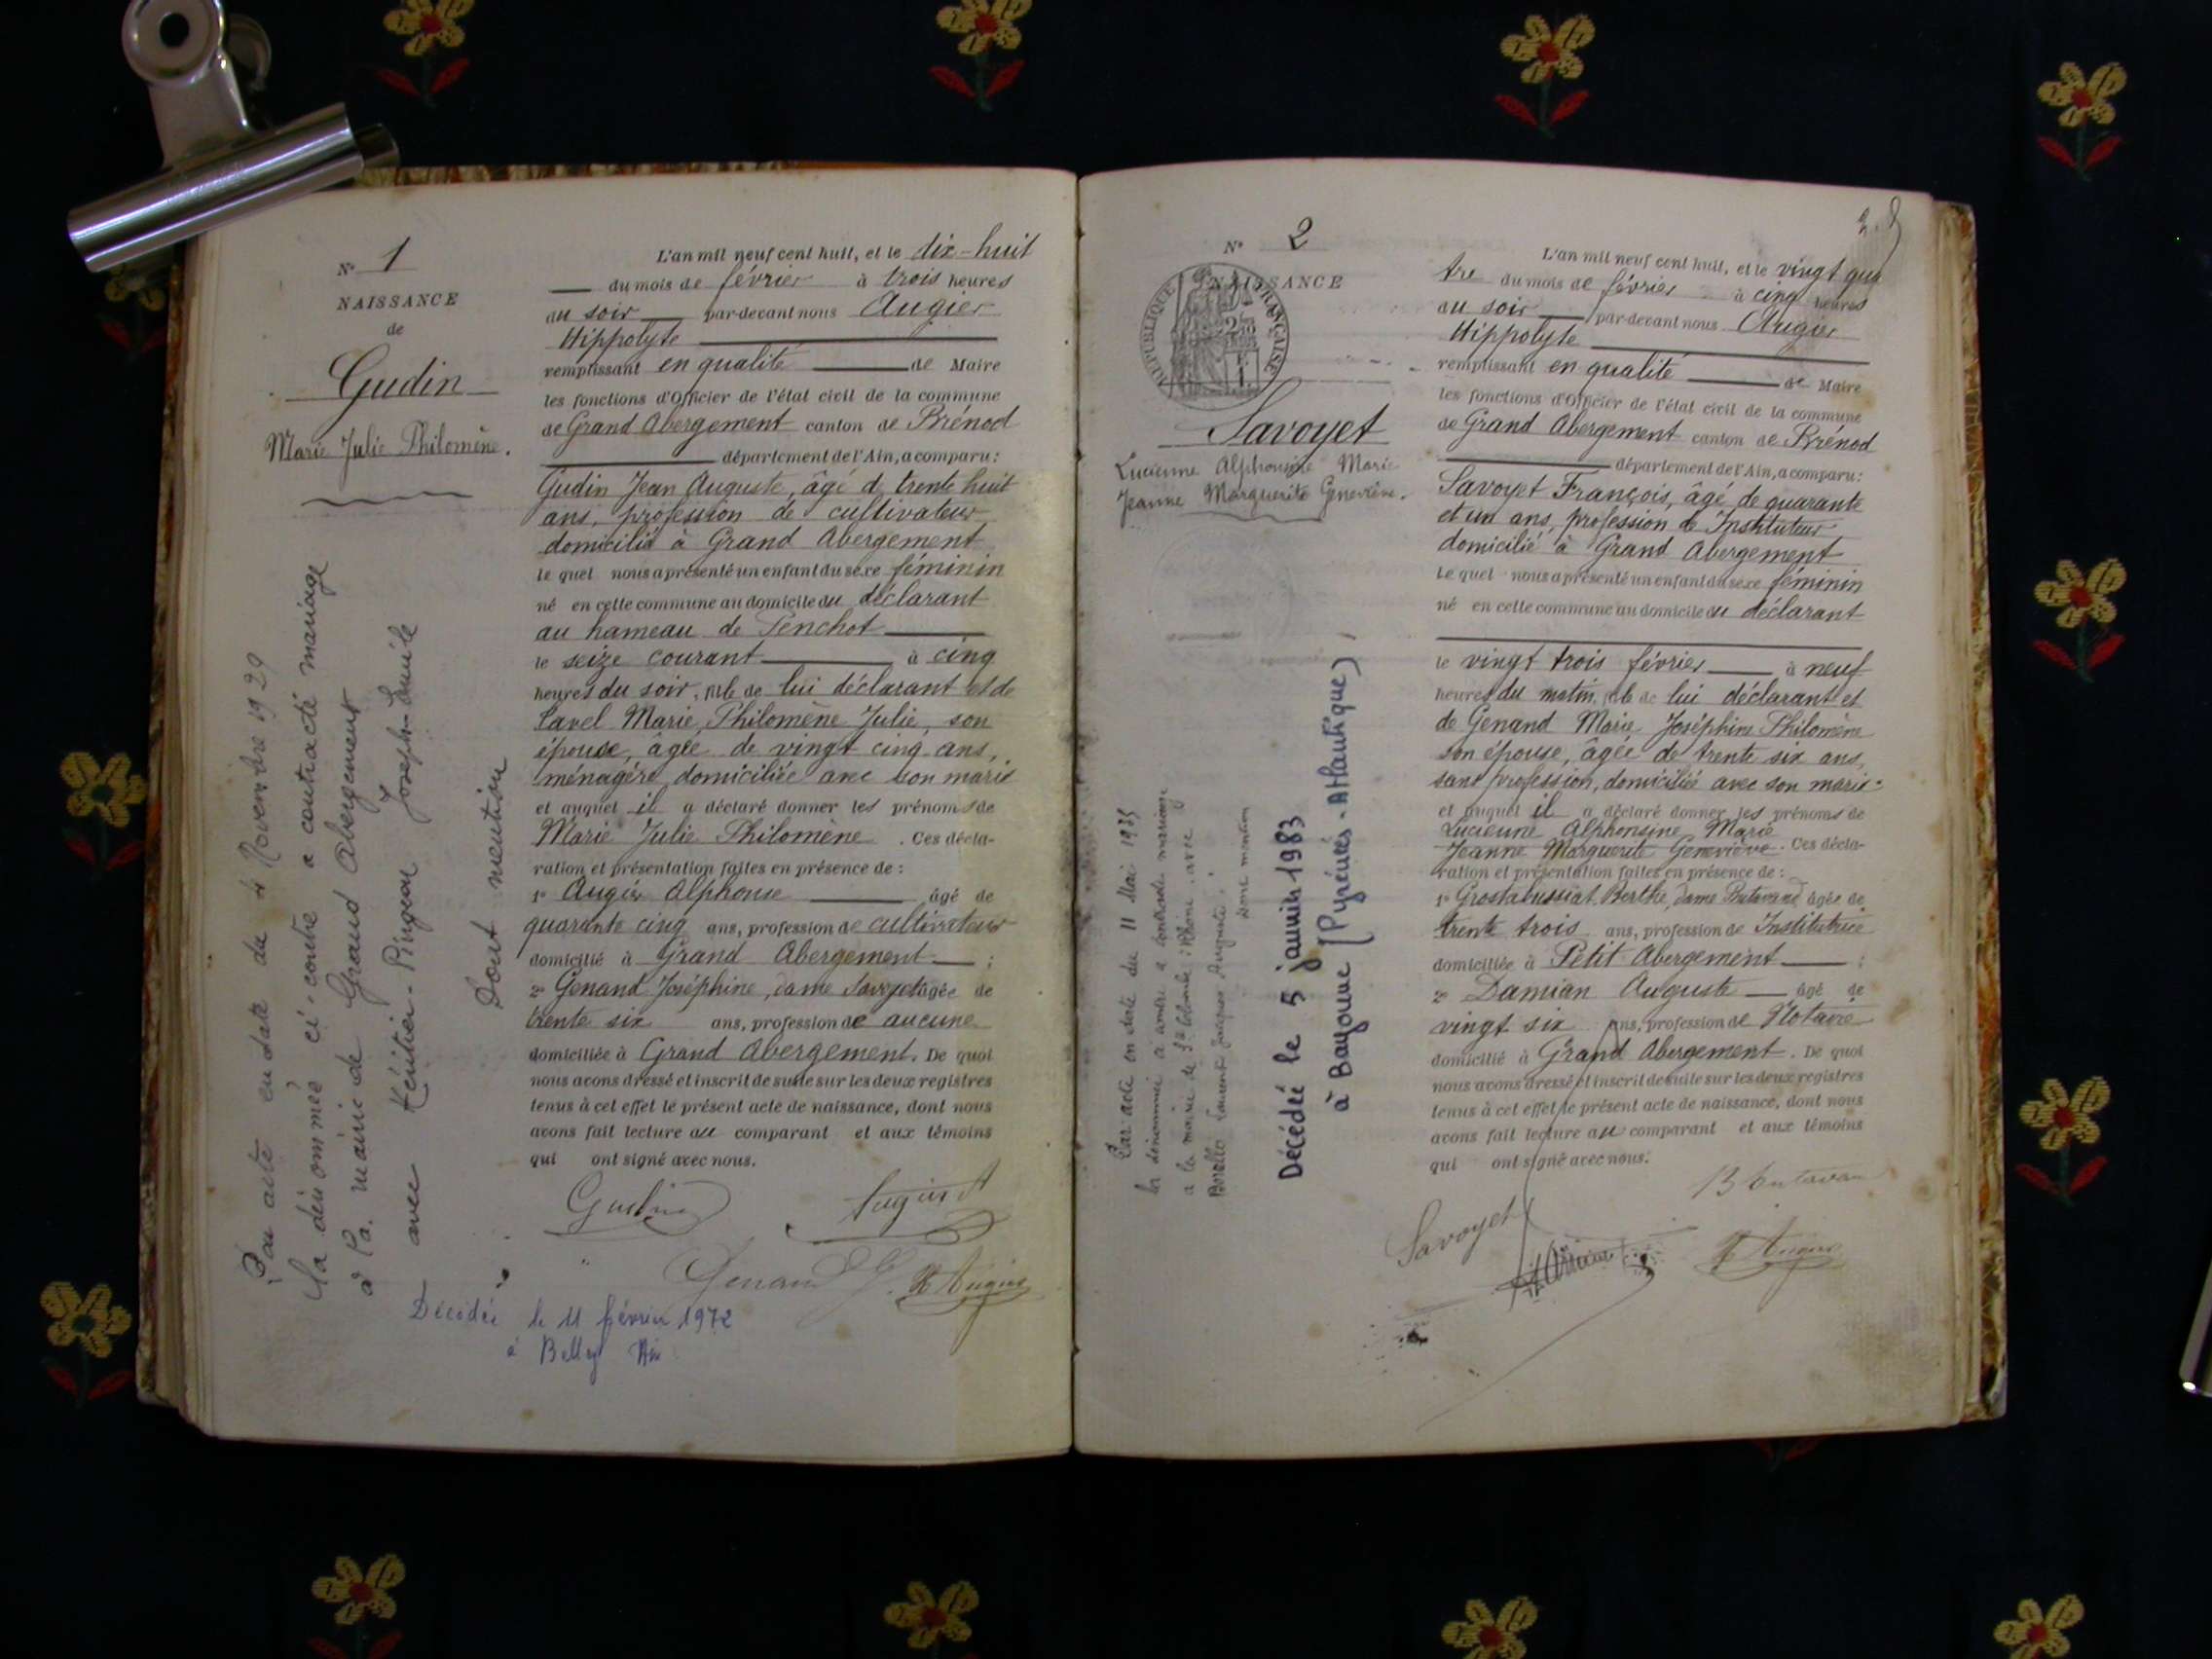 N° 1
NAISSANCE
de
Gudin
Marie Julie Philomène.
Par acte en date du 4 Novembre 1929
la dénommée ci-contre a contracté mariage
à la mairie de Grand Abergement
avec Joseph
Dont mention
L'an mil neuf cent huit, et le dix-huit
du mois de février à trois heures
du soir par-devant nous Augier
Hippolyte
remplissant en qualité de Maire
les fonctions d'Officier de l'état civil de la commune
de Grand Abergement canton de Brénod
département de l'Ain, a comparu:
Gudin Jean Auguste, âgé de trente huit
ans, profession de cultivateur
domicilié à Grand Abergement
le quel nous a présenté un enfant du sexe féminin
né en cette commune au domicile du déclarant
au hameau de
le seize courant à cinq
heures du soir, née de lui déclarant et de
Marie, Philomène Julie, son
épouse, âgée de vingt cinq ans,
ménagère domiciliée avec son marie
et auquel il a déclaré donner les prénoms de
Marie Julie Philomène. Ces décla-
ration et présentation faites en présence de :
1° Augier Alphonse âgé de
quarante cinq ans, profession de cultivateur
domicilié à Grand Abergement ;
2° Genand Joséphine, dame Savoyet âgée de
trente six ans, profession de aucune
domiciliée à Grand Abergement. De quoi
nous avons dressé et inscrit de suite sur les deux registres
tenus à cet effet le présent acte de naissance, dont nous
avons fait lecture au comparant et aux témoins
qui ont signé avec nous.
Gudin Augier A
Genand J. H Augier
Décédée le 11 février 1972
à Belley Ain
2
N° 2
NAISSANCE
RÉPUBLIQUE FRANÇAISE
Savoyet
Lucienne Alphonsine Marie
Jeanne Marguerite Geneviève.
Par acte en date du 11 Mai 1935
la dénommée ci contre a contracté mariage
à la mairie de Ste Colombe : Rhône : avec
Laurent Jacques Auguste :
Dont mention
Décédée le 5 janvier 1983
à Bayonne (Pyrénées-Atlantique)
L'an mil neuf cent huit, et le vingt qua
tre du mois de février à cinq heures
du soir par-devant nous Augier
Hippolyte
remplissant en qualité de Maire
les fonctions d'Officier de l'état civil de la commune
de Grand Abergement canton de Brénod
département de l'Ain, a comparu:
Savoyet François, âgé de quarante
et un ans, profession de Instituteur
domicilié à Grand Abergement
le quel nous a présenté un enfant du sexe féminin
né en cette commune au domicile du déclarant
le vingt trois février à neuf
heures du matin, née de lui déclarant et
de Genand Marie Joséphine Philomène
son épouse, âgée de trente six ans,
sans profession, domiciliée avec son marie
et auquel il a déclaré donner les prénoms de
Lucienne Alphonsine Marie
Jeanne Marguerite Geneviève. Ces décla-
ration et présentation faites en présence de :
1° Berthe, dame âgée de
trente trois ans, profession de Institutrice
domiciliée à Petit Abergement ;
2° Damian Auguste âgé de
vingt six ans, profession de Notaire
domicilié à Grand Abergement. De quoi
nous avons dressé et inscrit de suite sur les deux registres
tenus à cet effet le présent acte de naissance, dont nous
avons fait lecture au comparant et aux témoins
qui ont signé avec nous.
Savoyet
H Augier